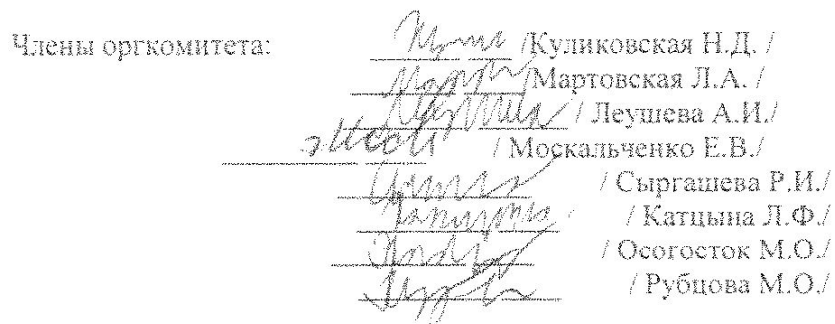 Члены оргкомитета: /Куликовская Н.Д. /
/Мартовская Л.А. /
/ Леушева А.И./
/ Москальченко Е.В./
/ Сыргашева Р.И./
/ Катцына Л.Ф./
/ Осогосток М.О./
/ Рубцова М.О./